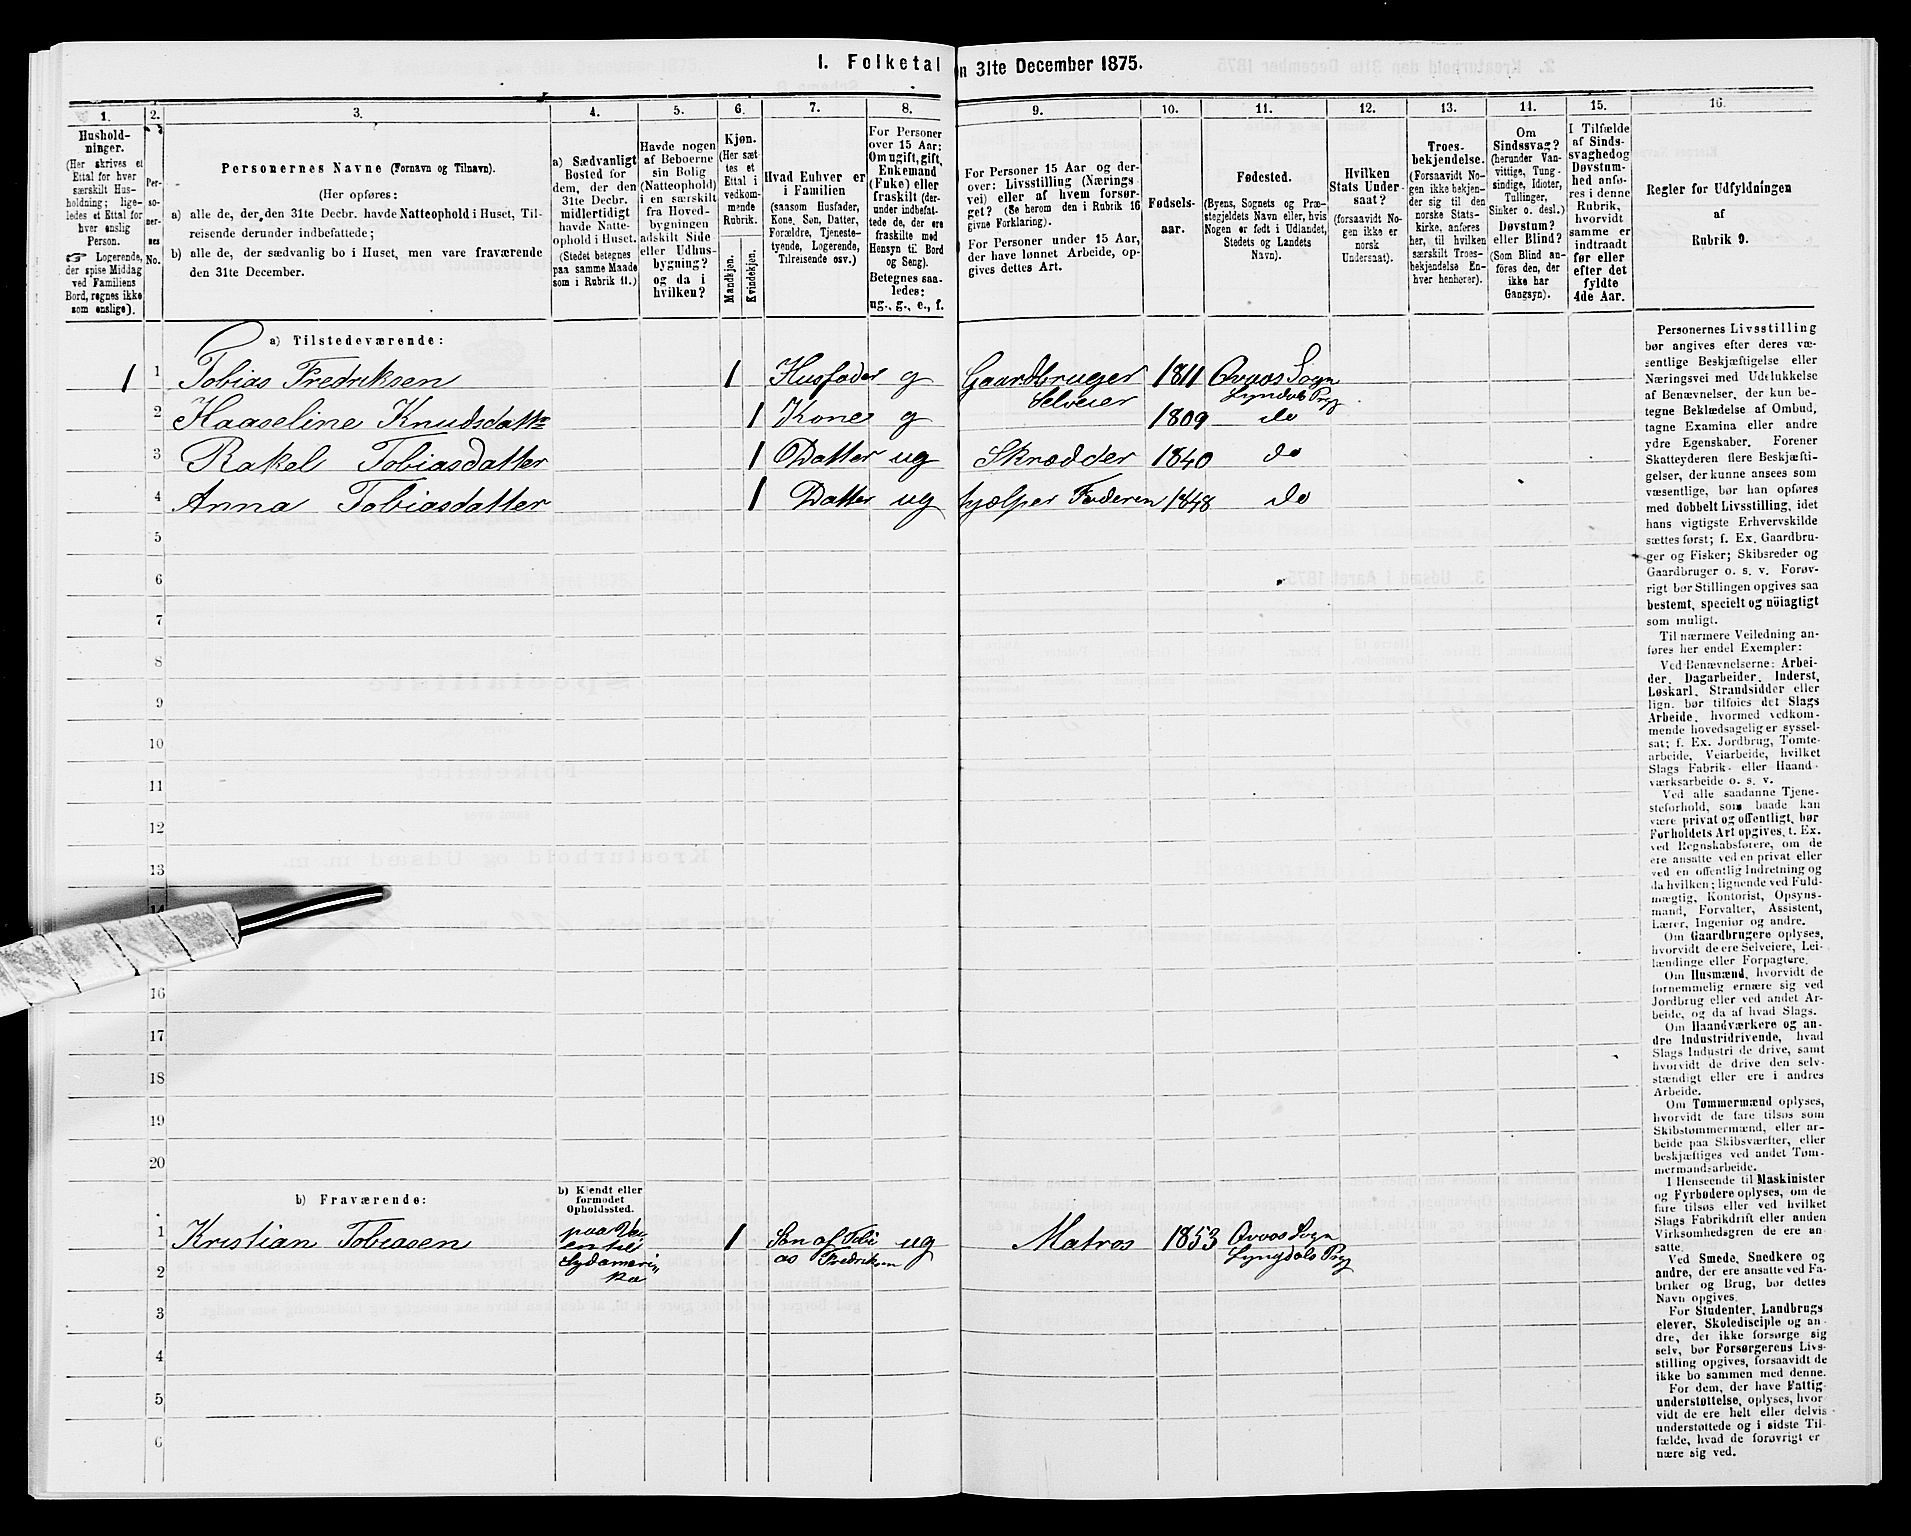 1. Folketal
n 31te December 1875.
1.
2.
3.
4.
5.
6.
7.
8.
9.
10.
11.
12.
13.
14.
15.
16.
Hushold-
ninger.
(Her skrives et
Ettal for hver
særskilt Hus-
holdning; lige-
ledes et Ettal for
hver enslig
Person.
☞ Logerende,
der spise Middag
ved Familiens
Bord, regnes ikke
som enslige).
Per-
so-
ner-
nes
No.
Personernes Navne (Fornavn og Tilnavn).
(Her opføres:
a) alle de, der den 31te Decbr. havde Natteophold i Huset, Til-
reisende derunder indbefattede;
b) alle de, der sædvanlig bo i Huset, men vare fraværende
den 31te December.
a) Sædvanligt
Bosted for
dem, der den
31te Decbr.
midlertidigt
havde Natte-
ophold i Huset.
(Stedet betegnes
paa samme Maade
som i Rubrik 11.)
Havde nogen
af Beboerne
sin Bolig
(Natteophold)
i en særskilt
fra Hoved-
bygningen
adskilt Side
eller Udhus-
bygning?
og da i
hvilken?
Kjøn.
(Her sæt-
tes et
Ettal i
vedkom-
mende
Rubrik.
Mandkjøn.
Kvindekjøn.
Hvad Enhver er
i Familien
(saasom Husfader,
Kone, Søn, Datter,
Forældre, Tjeneste-
tyende, Logerende,
Tilreisende osv.)
For Personer
over 15 Aar:
Om ugift, gift,
Enkemand
(Enke) eller
fraskilt (der-
under indbefat-
tede de, der ere
fraskilte med
Hensyn til Bord
og Seng).
Betegnes saa-
ledes:
ug., g., e., f.
For Personer 15 Aar og der-
over: Livsstilling (Nærings
vei) eller af hvem forsør-
get? (Se herom den i Rubrik 16
givne Forklaring).
For Personer under 15 Aar,
der have lønnet Arbeide, op-
gives dettes Art.
Fødsels-
aar.
Fødested.
(Byens, Sognets og Præ-
stegjeldets Navn eller, hvis
Nogen er født i Udlandet,
Stedets og Landets
Navn).
Hvilken
Stats Under-
saat?
(forsaavidt No-
gen ikke er
norsk
Undersaat).
Troes-
bekjendelse.
(Forsaavidt No-
gen ikke bekjen-
der sig til den
norske Stats-
kirke, anføres
her, til hvilken
særskilt Troes-
bekjendelse En-
hver henhører).
Om
Sindssvag?
(herunder Van-
vittige, Tung-
sindige, Idioter,
Tullinger,
Sinker o. desl.)
Døvstum?
eller Blind?
(Som Blind an-
føres den, der
ikke har
Gangsyn).
I Tilfælde
af Sinds-
svaghed og
Døvstum-
hed anfø-
res i denne
Rubrik,
hvorvidt
samme er
indtraadt
før eller
efter det
fyldte
4de Aar.
Regler for Udfyldningen
af
Rubrik 9.
a) Tilstedeværende:
1 1 Tobias Fredriksen 1 Husfader g Gaardbruger 1811 Qvaas Sogn
Selveier Lyndals Prg
2 Haaseline Knudsdatte 1 Kone g 1809 do
3 Rakel Tobiasdatter 1 Datter ug Skrædder 1840 do
4 Anna Tobiasdatter 1 Datter ug hjælper Faderen 1848 do
5
6
7
8
9
10
11
12
13
14
16
17
18
19
20
b) Fraværende:
b) Kjendt eller
formodet
Opholdssted.
1 Kristian Tobiasen paa Vei 1 Søn af Tobi ug Matros 1853 Qvaas Sogn
en til as Fredriksen Lyngdals Prg
2 Sydameri„
ka
3
4
5
6
Personernes Livsstilling
bør angives efter deres væ-
sentlige Beskjæftigelse eller
Næringsvei med Udelukkelse
af Benævnelser, der kun be-
tegne Beklædelse af Ombud,
tagne Examina eller andre
ydre Egenskaber. Forener
Skatteyderen flere Beskjæfti-
gelser, der kunne ansees som
væsentlige, bør han opføres
med dobbelt Livsstilling, idet
hans vigtigste Erhvervskilde
sættes først; f. Ex. Gaardbru-
ger og Fisker; Skibsreder og
Gaardbruger o. s. v. Forøv-
rigt bør Stillingen opgives saa
bestemt, specielt og nøiagtigt
som muligt.
Til nærmere Veiledning an-
føres her endel Exempler:
Ved Benævnelserne: Arbei-
der, Dagarbeider, Inderst,
Løskarl, Strandsidder eller
lign. bør tilføies det Slags
Arbeide, hvormed vedkom-
mende hovedsagelig er syssel-
sat; f. Ex. Jordbrug, Tomte-
arbeide, Veiarbeide, hvilket
Slags Fabrik- eller Haand-
værksarbeide o. s. v.
Ved alle saadanne Tjene-
steforhold, som baade kan
være privat og offentligt, bør
Forholdets Art opgives, t. Ex.
ved Regnskabsførere, om de
ere ansatte ved en privat eller
ved en offentlig Indretning og
da hvilken; lignende ved Fuld-
mægtig, Kontorist, Opsyns-
mand, Forvalter, Assistent,
Lærer, Ingeniør og andre.
Om Gaardbrugere oplyses,
hvorvidt de ere Selveiere, Lei-
lændinge eller Forpagtere.
Om Husmænd, hvorvidt de
fornemmelig ernære sig ved
Jordbrug eller ved andet Ar-
beide, og da af hvad Slags.
Om Haandværkere og an-
dre Industridrivende, hvad
Slags Industri de drive, samt
hvorvidt de drive den selv-
stændigt eller ere i andres
Arbeide.
Om Tømmermænd oplyses,
hvorvidt de fare tilsøs som
Skibstømmermænd, eller ar-
beide paa Skibsværfter, eller
beskjæftiges ved andet Tøm-
mermandsarbeide.
I Henseende til Maskinister
og Fyrbødere oplyses, om de
fare tilsøs eller ved hvilket
Slags Fabrikdrift eller anden
Virksomhedsgren de ere an-
satte.
Ved Smede, Snedkere og
andre, der ere ansatte ved Fa-
briker og Brug, bør dettes
Navn opgives.
For Studenter, Landbrugs
elever, Skoledisciple og an-
dre, der ikke forsørge sig
selv, bør Forsørgerens Livs-
stilling opgives, forsaavidt de
ikke bo sammen med denne.
For dem, der have Fattig-
understøttelse, oplyses, hvor-
vidt de ere helt eller delvis
understøttede og i sidste Til-
fælde, hvad de forøvrigt er
nære sig ved.